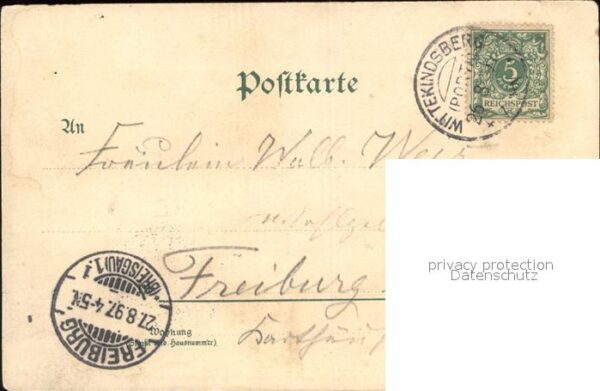 Postkarte
WITTEKINDSBERG
(PORTA)
5
REICHSPOST
An
Fräulein Walb.
privacy protection
Datenschutz
Freiburg
FREIBURG
27.8.97.4-5N.
(BREISGAU) 1.1
Wohnung
(Straße und Hausnummer).